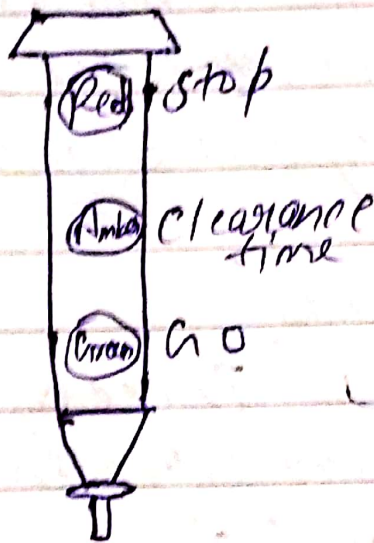 Red
Stop
Amber
Clearance
time
Green
Go